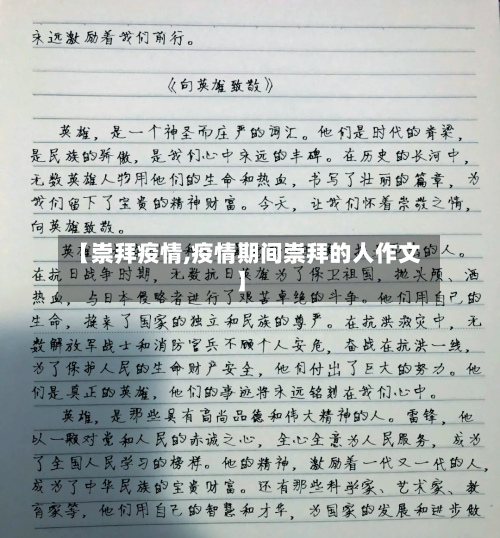 永远激励着我们前行。
《向英雄致敬》
英雄，是一个神圣而庄严的词汇。他们是时代的脊梁，
是民族的骄傲，是我们心中永远的丰碑。在历史的长河中，
无数英雄人物用他们的生命和热血，书写了壮丽的篇章，为
我们留下了宝贵的精神财富。今天，让我们怀着崇敬之情，
向英雄致敬。
英雄
的人。
【崇拜疫情,疫情期间崇拜的人作文
】
在抗日战争时期，无数抗日英雄为了保卫祖国，抛头颅、洒
热血，与日本侵略者进行了艰苦卓绝的斗争。他们用自己的
生命，换来了国家的独立和民族的尊严。在抗洪救灾中，无
数解放军战士和消防官兵不顾个人安危，奋战在抗洪一线，
为了保护人民的生命财产安全，他们付出了巨大的努力。他
们是真正的英雄，他们的事迹将永远铭刻在我们心中。
英雄，是那些具有高尚品德和伟大精神的人。雷锋，他
以一颗对党和人民的赤诚之心，全心全意为人民服务，成为
了全国人民学习的榜样。他的精神，激励着一代又一代的人，
成为了中华民族的宝贵财富。还有那些科学家、艺术家、教
育家等，他们用自己的智慧和才华，为国家的发展和进步做